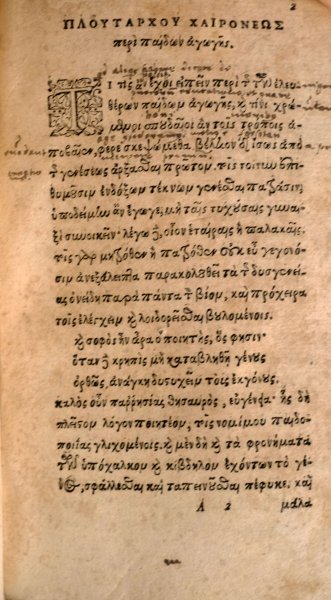 2
ΠΛΟΥΤΑΡΧΟΥ ΧΑΙΡΟΝΕΩΣ
περὶ παίδων ἀγωγῆς.
Τί τις ἂν ἔχοι εἰπεῖν περὶ τ τῶν ἐλευ
θέρων παίδων ἀγωγῆς, κ τίνι χρώ
μενοι σπουδαῖοι ἂν τοῖς τρόποις ἀ
ποβαῖεν, φέρε σκεψώμεθα. βέλτιον δ' ἴσως ἀπὸ
τ γενέσεως ἄρξασθαι πρῶτον. τοῖς τοίνυν ἐπι
θυμοῦσιν ἐνδόξων τέκνων γενέσθαι πατράσιν,
ὑποθείμην ἂν ἔγωγε, μὴ ταῖς τυχούσαις γυναι
ξὶ συνοικεῖν· λέγω δ, οἷον ἑταίραις, ἢ παλλακαῖς.
τοῖς γὰρ μητρόθεν ἢ πατρόθεν οὐκ εὖ γεγονό
σιν ἀνεξάλειπτα παρακολουθεῖ τὰ τ δυσγενεί
ας ὀνείδη παρὰ πάντα τ βίον, καὶ πρόχειρα
τοῖς ἐλέγχειν κ λοιδορεῖσθαι βουλομένοις.
κ σοφὸς ἦν ἄρα ὁ ποιητὴς, ὅς φησιν·
ὅταν δ κρηπὶς μὴ καταβληθῇ γένους
ὀρθῶς, ἀνάγκη δυστυχεῖν τοὺς ἐκγόνους.
καλὸς οὖν παρρησίας θησαυρὸς, εὐγένεια. ἧς δὴ
πλεῖστον λόγον ποιητέον, τοῖς νομίμου παιδο
ποιίας γλιχομένοις. κ μὲν δὴ κ τὰ φρονήματα
τῶν ὑπόχαλκον κ κίβδηλον ἐχόντων τὸ γέ
νος, σφάλλεσθαι καὶ ταπεινοῦσθαι πέφυκε. καὶ
A 2 μάλα